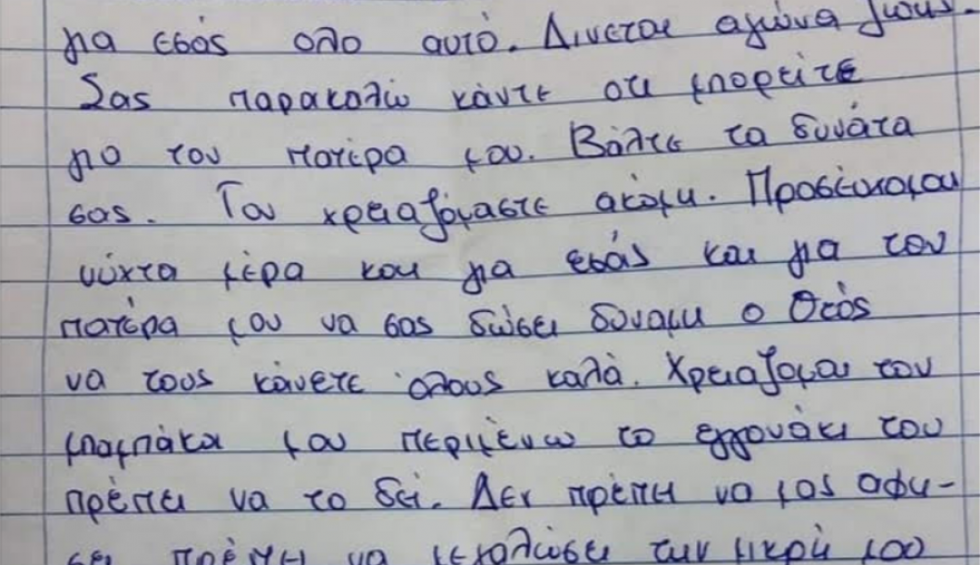 για εσάς ολο αυτό. Δινεται αγώνα ζωης.
Σας παρακολώ κάντε οτι μπορείτε
για τον πατέρα μου. Βάλτε τα δυνάτα
σας. Τον χρειαζόμαστε ακόμη. Προσέυχομαι
νύχτα μέρα και για εσάς και για τον
πατέρα μου να σας δώσει δυναμη ο Θεός
να τους κάνετε όλους καλά. Χρειαζομαι τον
μπαμπάκα μου περιμένω το εγγονάκι του
πρέπει να το δεί. Δεν πρέπει να μας αφη-
σει πρέπει να μεγαλώσει την μικρή μου